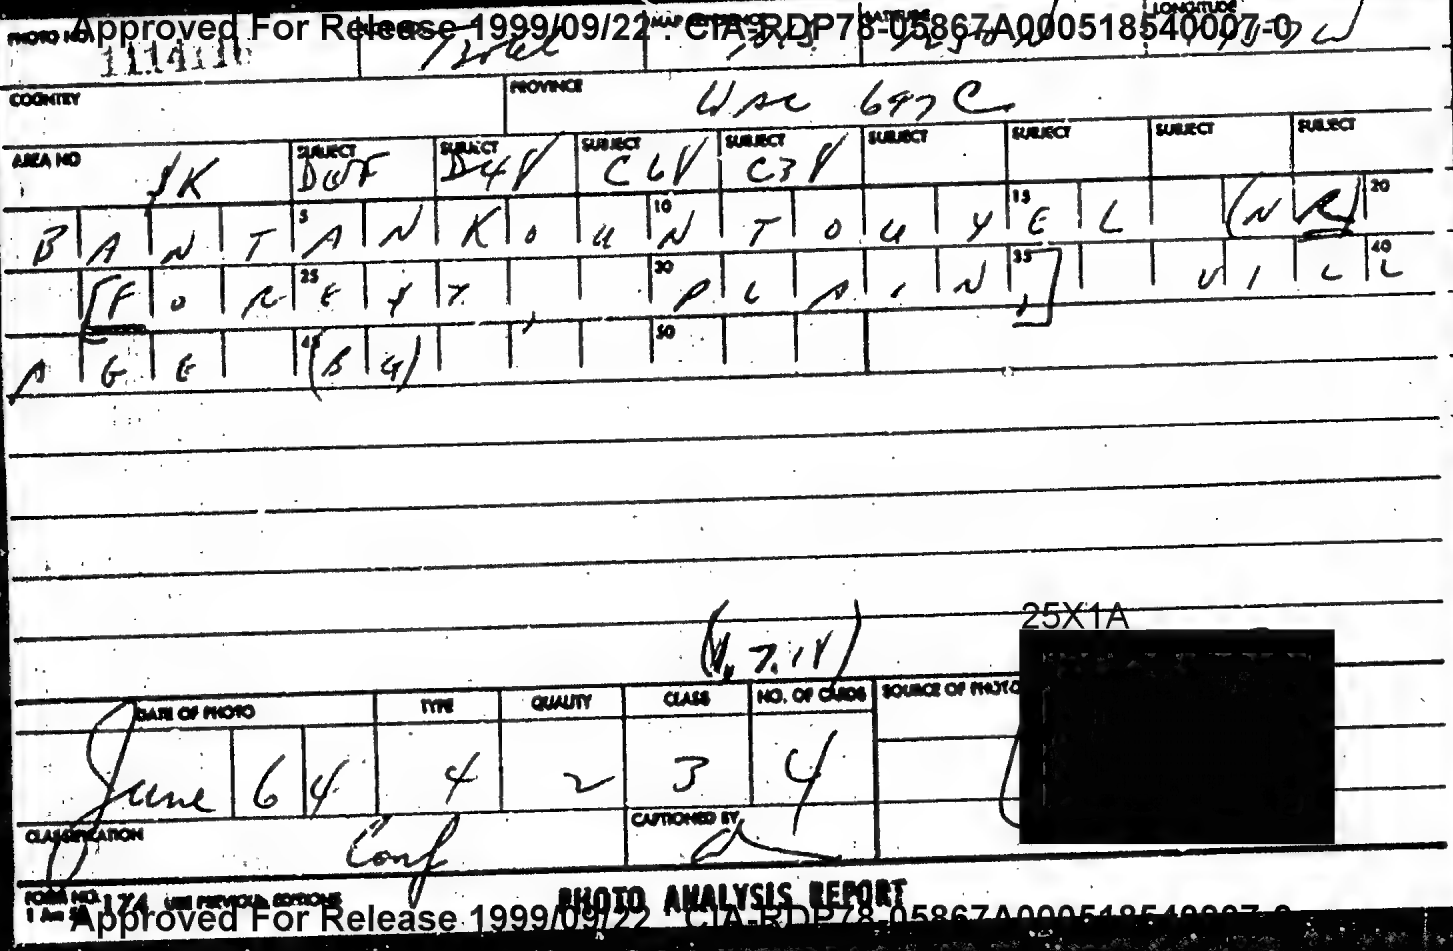 Approved For Release 1999/09/22 : CIA-RDP78-05867A000518540007-0
PHOTO NO. MAP REFERENCE LATITUDE LONGITUDE
COUNTRY PROVINCE WAC 697 C
AREA NO SUBJECT SUBJECT SUBJECT SUBJECT SUBJECT SUBJECT SUBJECT SUBJECT
D4V C6V C3V
B A N T 5 A N K O U 10 N T O U Y 15 E L (N R) 20
[F O R 25 E S T 30 P L A I N 35 ] V I L 40 L
A G E 45 (B G) 50
25X1A
DATE OF PHOTO TYPE QUALITY CLASS NO. OF CARDS SOURCE OF PHOTO
June 64 4 2 3 4
CLASSIFICATION Conf CAPTIONED BY
FORM NO. 174 USE PREVIOUS EDITIONS PHOTO ANALYSIS REPORT
Approved For Release 1999/09/22 : CIA-RDP78-05867A000518540007-0